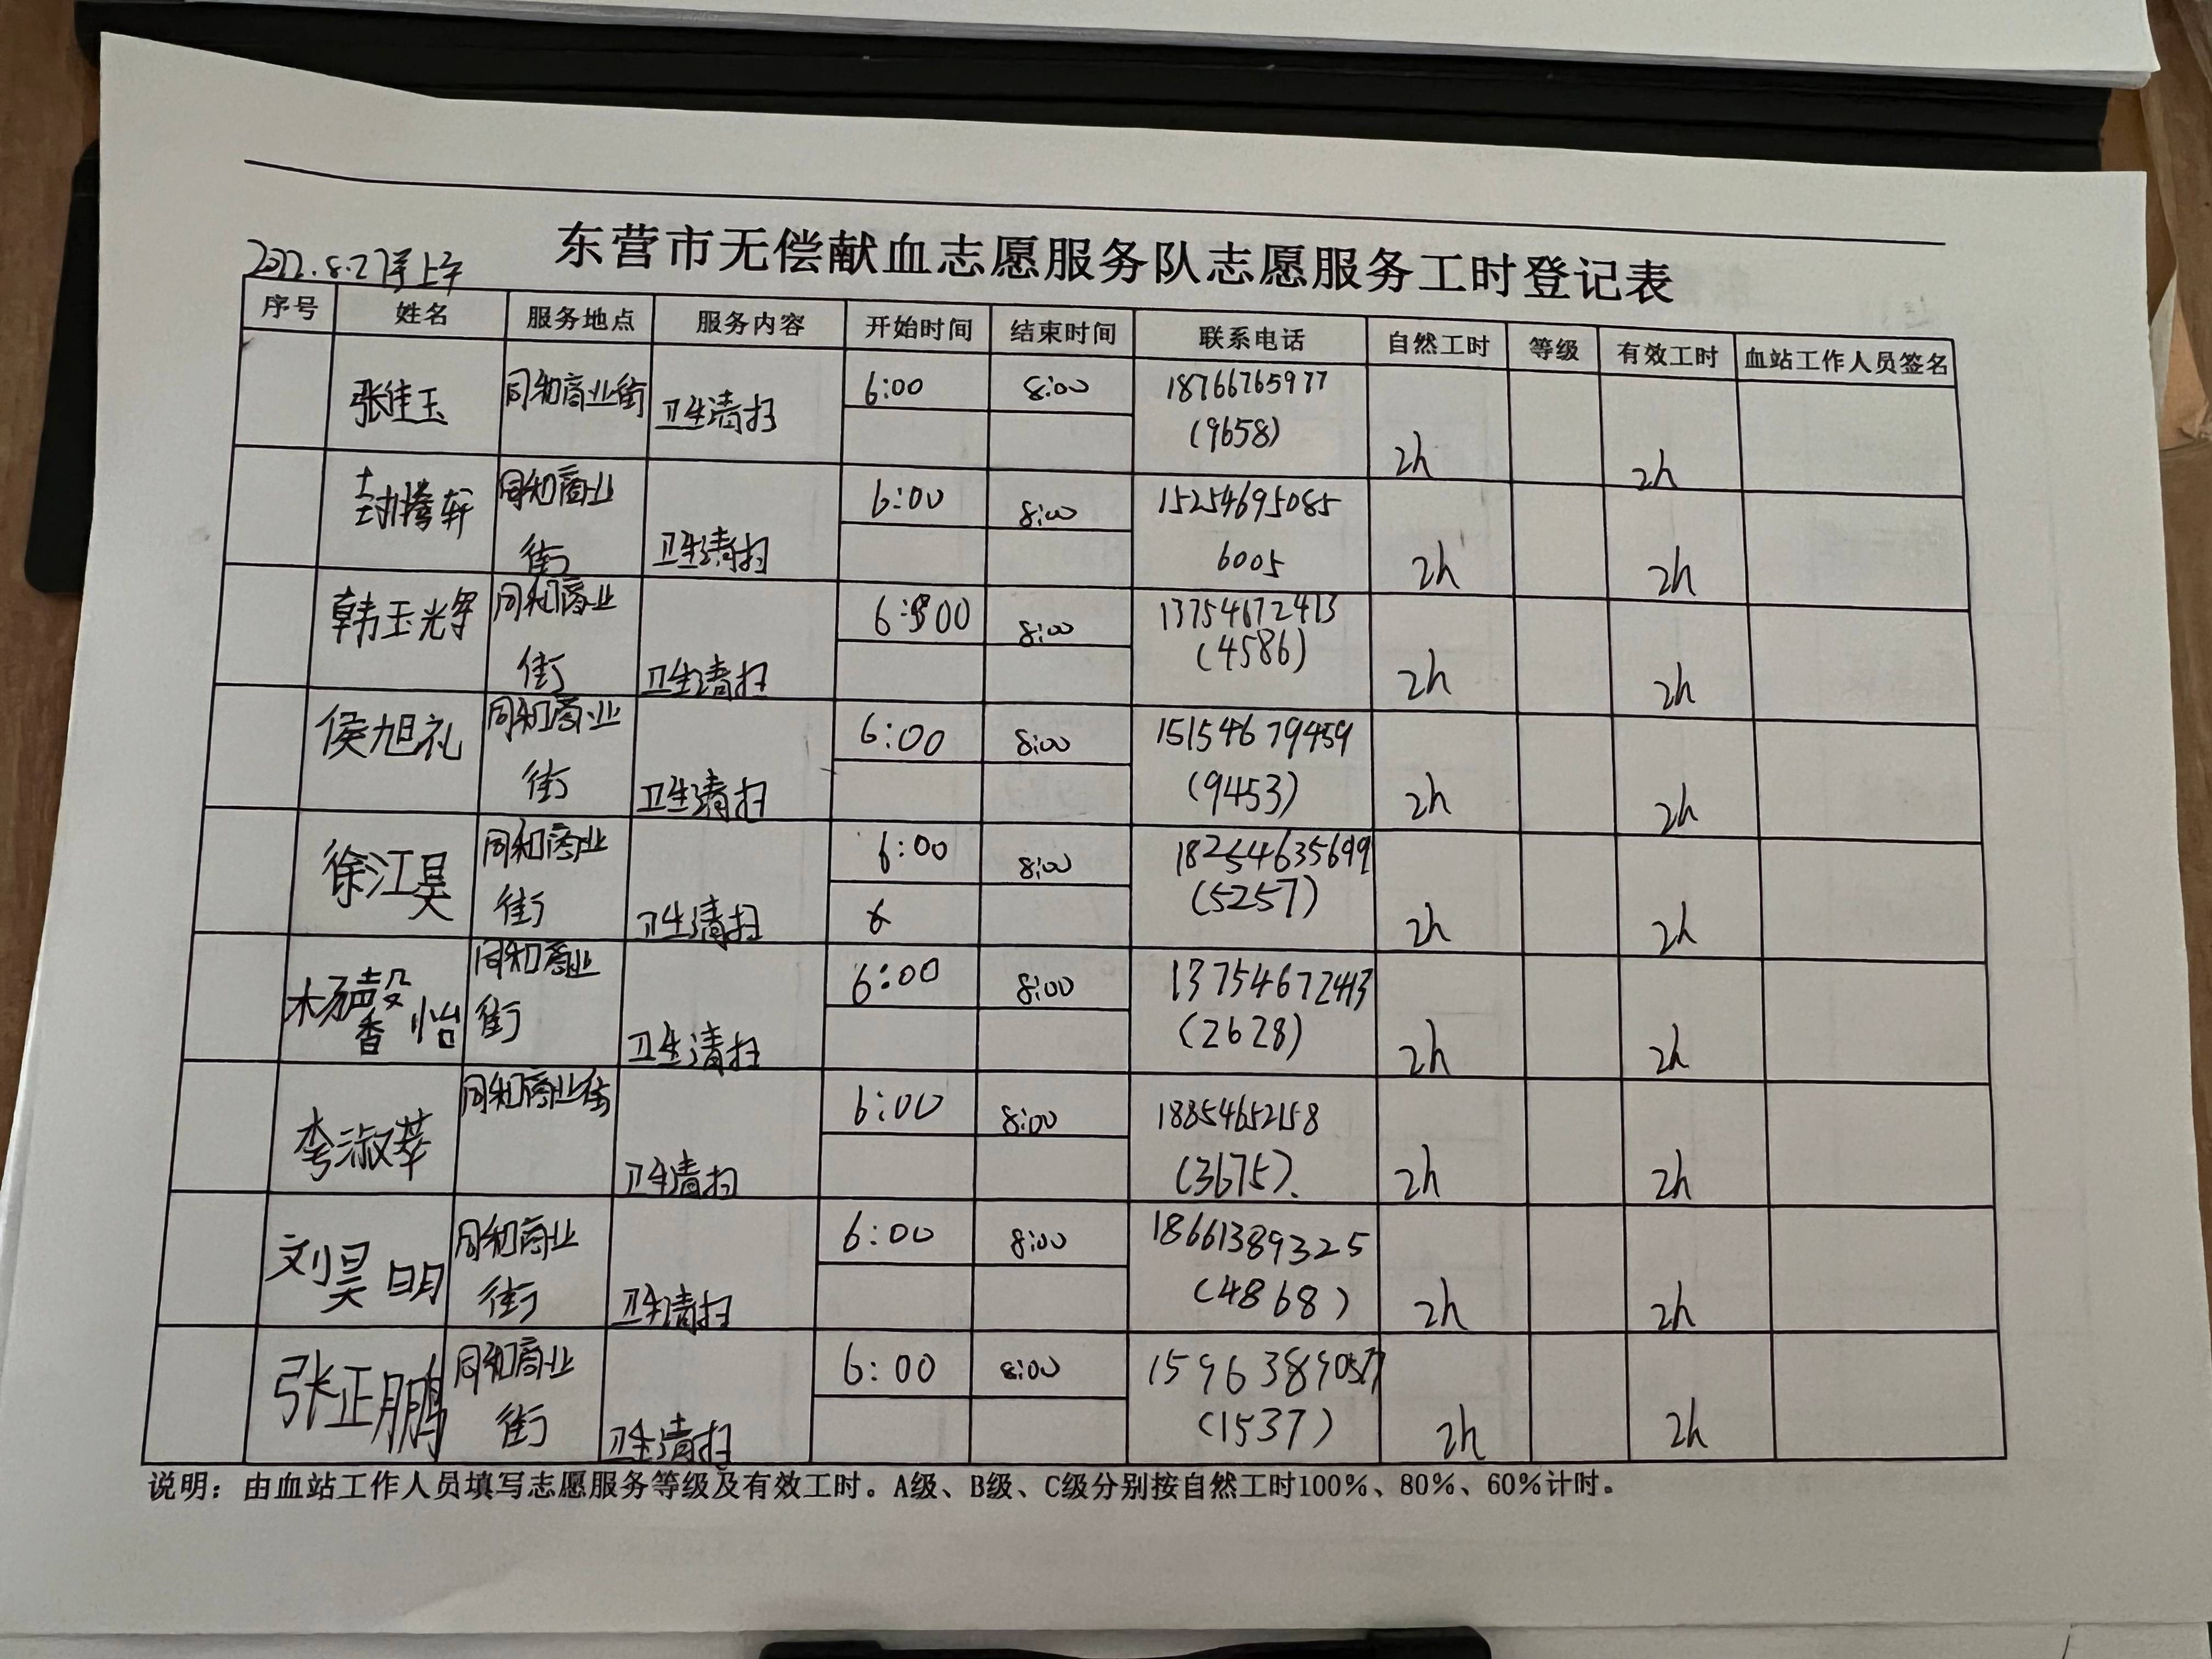 东营市无偿献血志愿服务队志愿服务工时登记表
2022.8.27 上午
序号 姓名 服务地点 服务内容 开始时间 结束时间 联系电话 自然工时 等级 有效工时 血站工作人员签名
张佳玉 同和商业街 卫生清扫 6:00 8:00 18766765977
(9658) 2h 2h
封腾轩 同和商业 6:00 8:00 15254695085
街 卫生清扫 6005 2h 2h
韩玉光 同和商业 6:00 8:00 13754672413
街 卫生清扫 (4586) 2h 2h
侯旭礼 同和商业 6:00 8:00 15154679459
街 卫生清扫 (9453) 2h 2h
徐江昊 同和商业 6:00 8:00 18254635699
街 卫生清扫 (5257) 2h 2h
杨馨怡 同和商业 6:00 8:00 13754672413
街 卫生清扫 (2628) 2h 2h
李淑萃 同和商业街 6:00 8:00 18854652158
卫生清扫 (3675). 2h 2h
刘昊明 同和商业 6:00 8:00 18661389325
街 卫生清扫 (4868) 2h 2h
张正鹏 同和商业 6:00 8:00
街 卫生清扫 (1537) 2h 2h
说明：由血站工作人员填写志愿服务等级及有效工时。A级、B级、C级分别按自然工时100%、80%、60%计时。